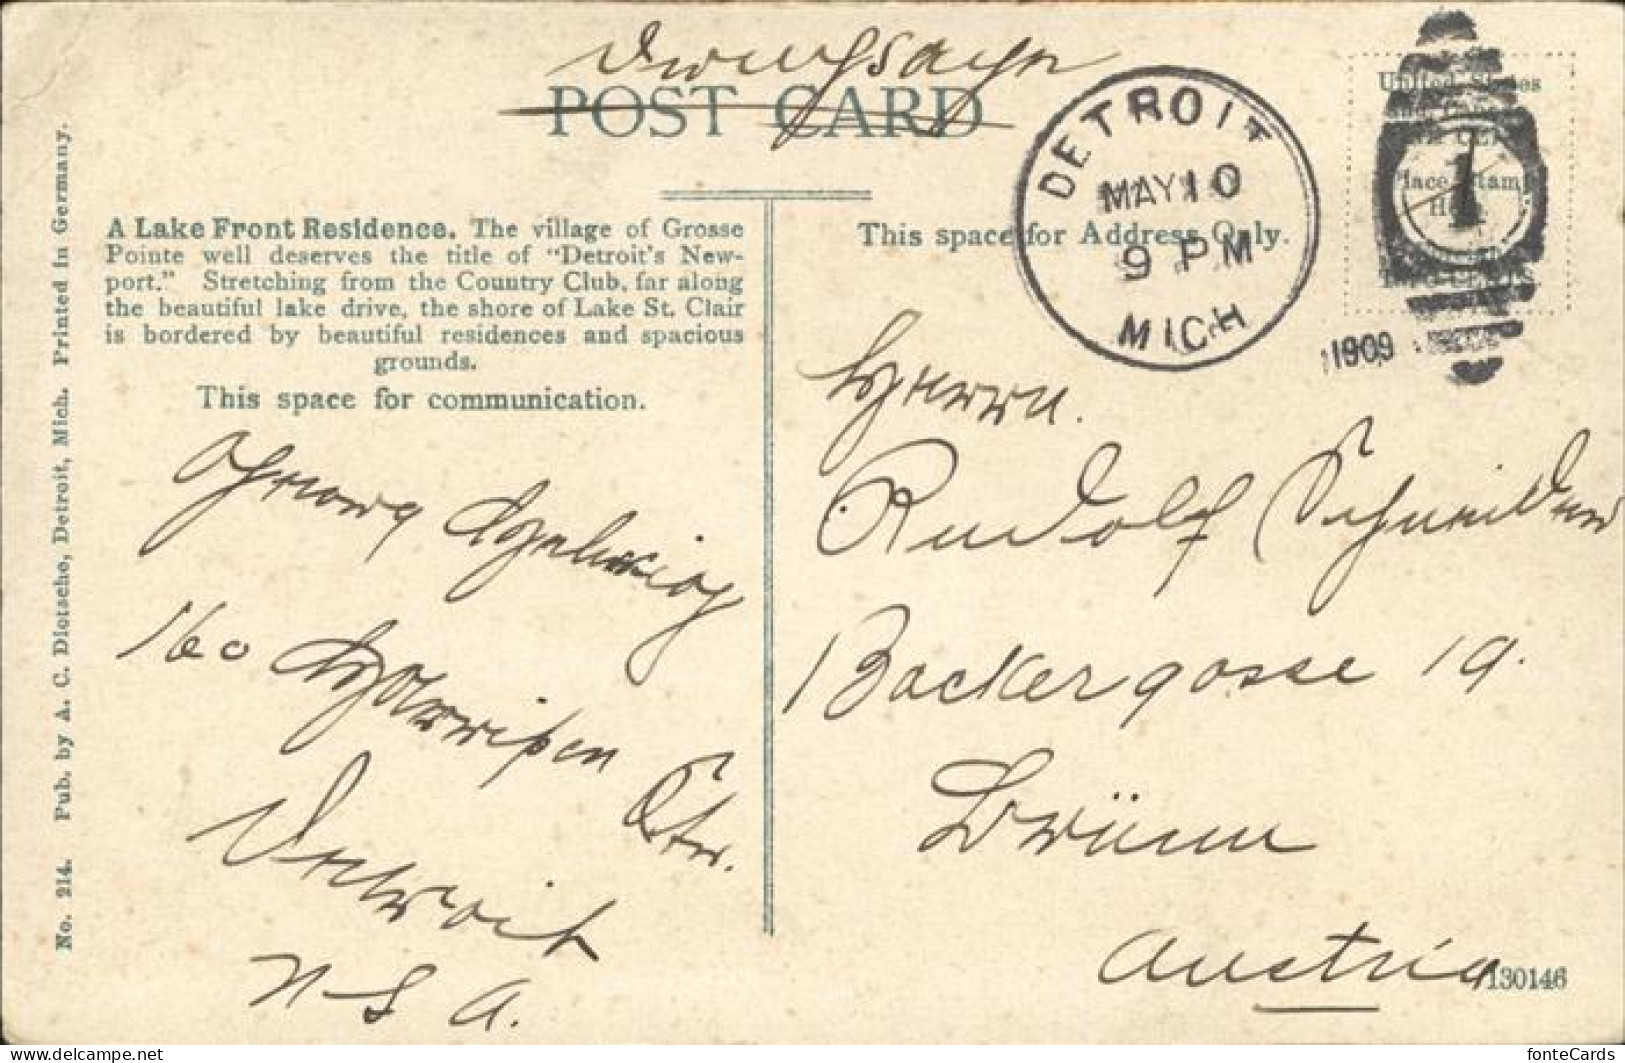 Drucksache
POST CARD
DETROIT
MAY 10
9 PM
MICH
1909
1
United States
Place Stamp
Here
A Lake Front Residence. The village of Grosse
Pointe well deserves the title of "Detroit's New-
port." Stretching from the Country Club, far along
the beautiful lake drive, the shore of Lake St. Clair
is bordered by beautiful residences and spacious
grounds.
This space for communication.
This space for Address Only.
Georg
160
Str.
Detroit
U S A.
Herrn
Rudolf Schneider
Backergasse 19.
Brünn
Austria
130146
No. 214. Pub. by A. C. Dietsche, Detroit, Mich. Printed in Germany.
fonteCards
www.delcampe.net